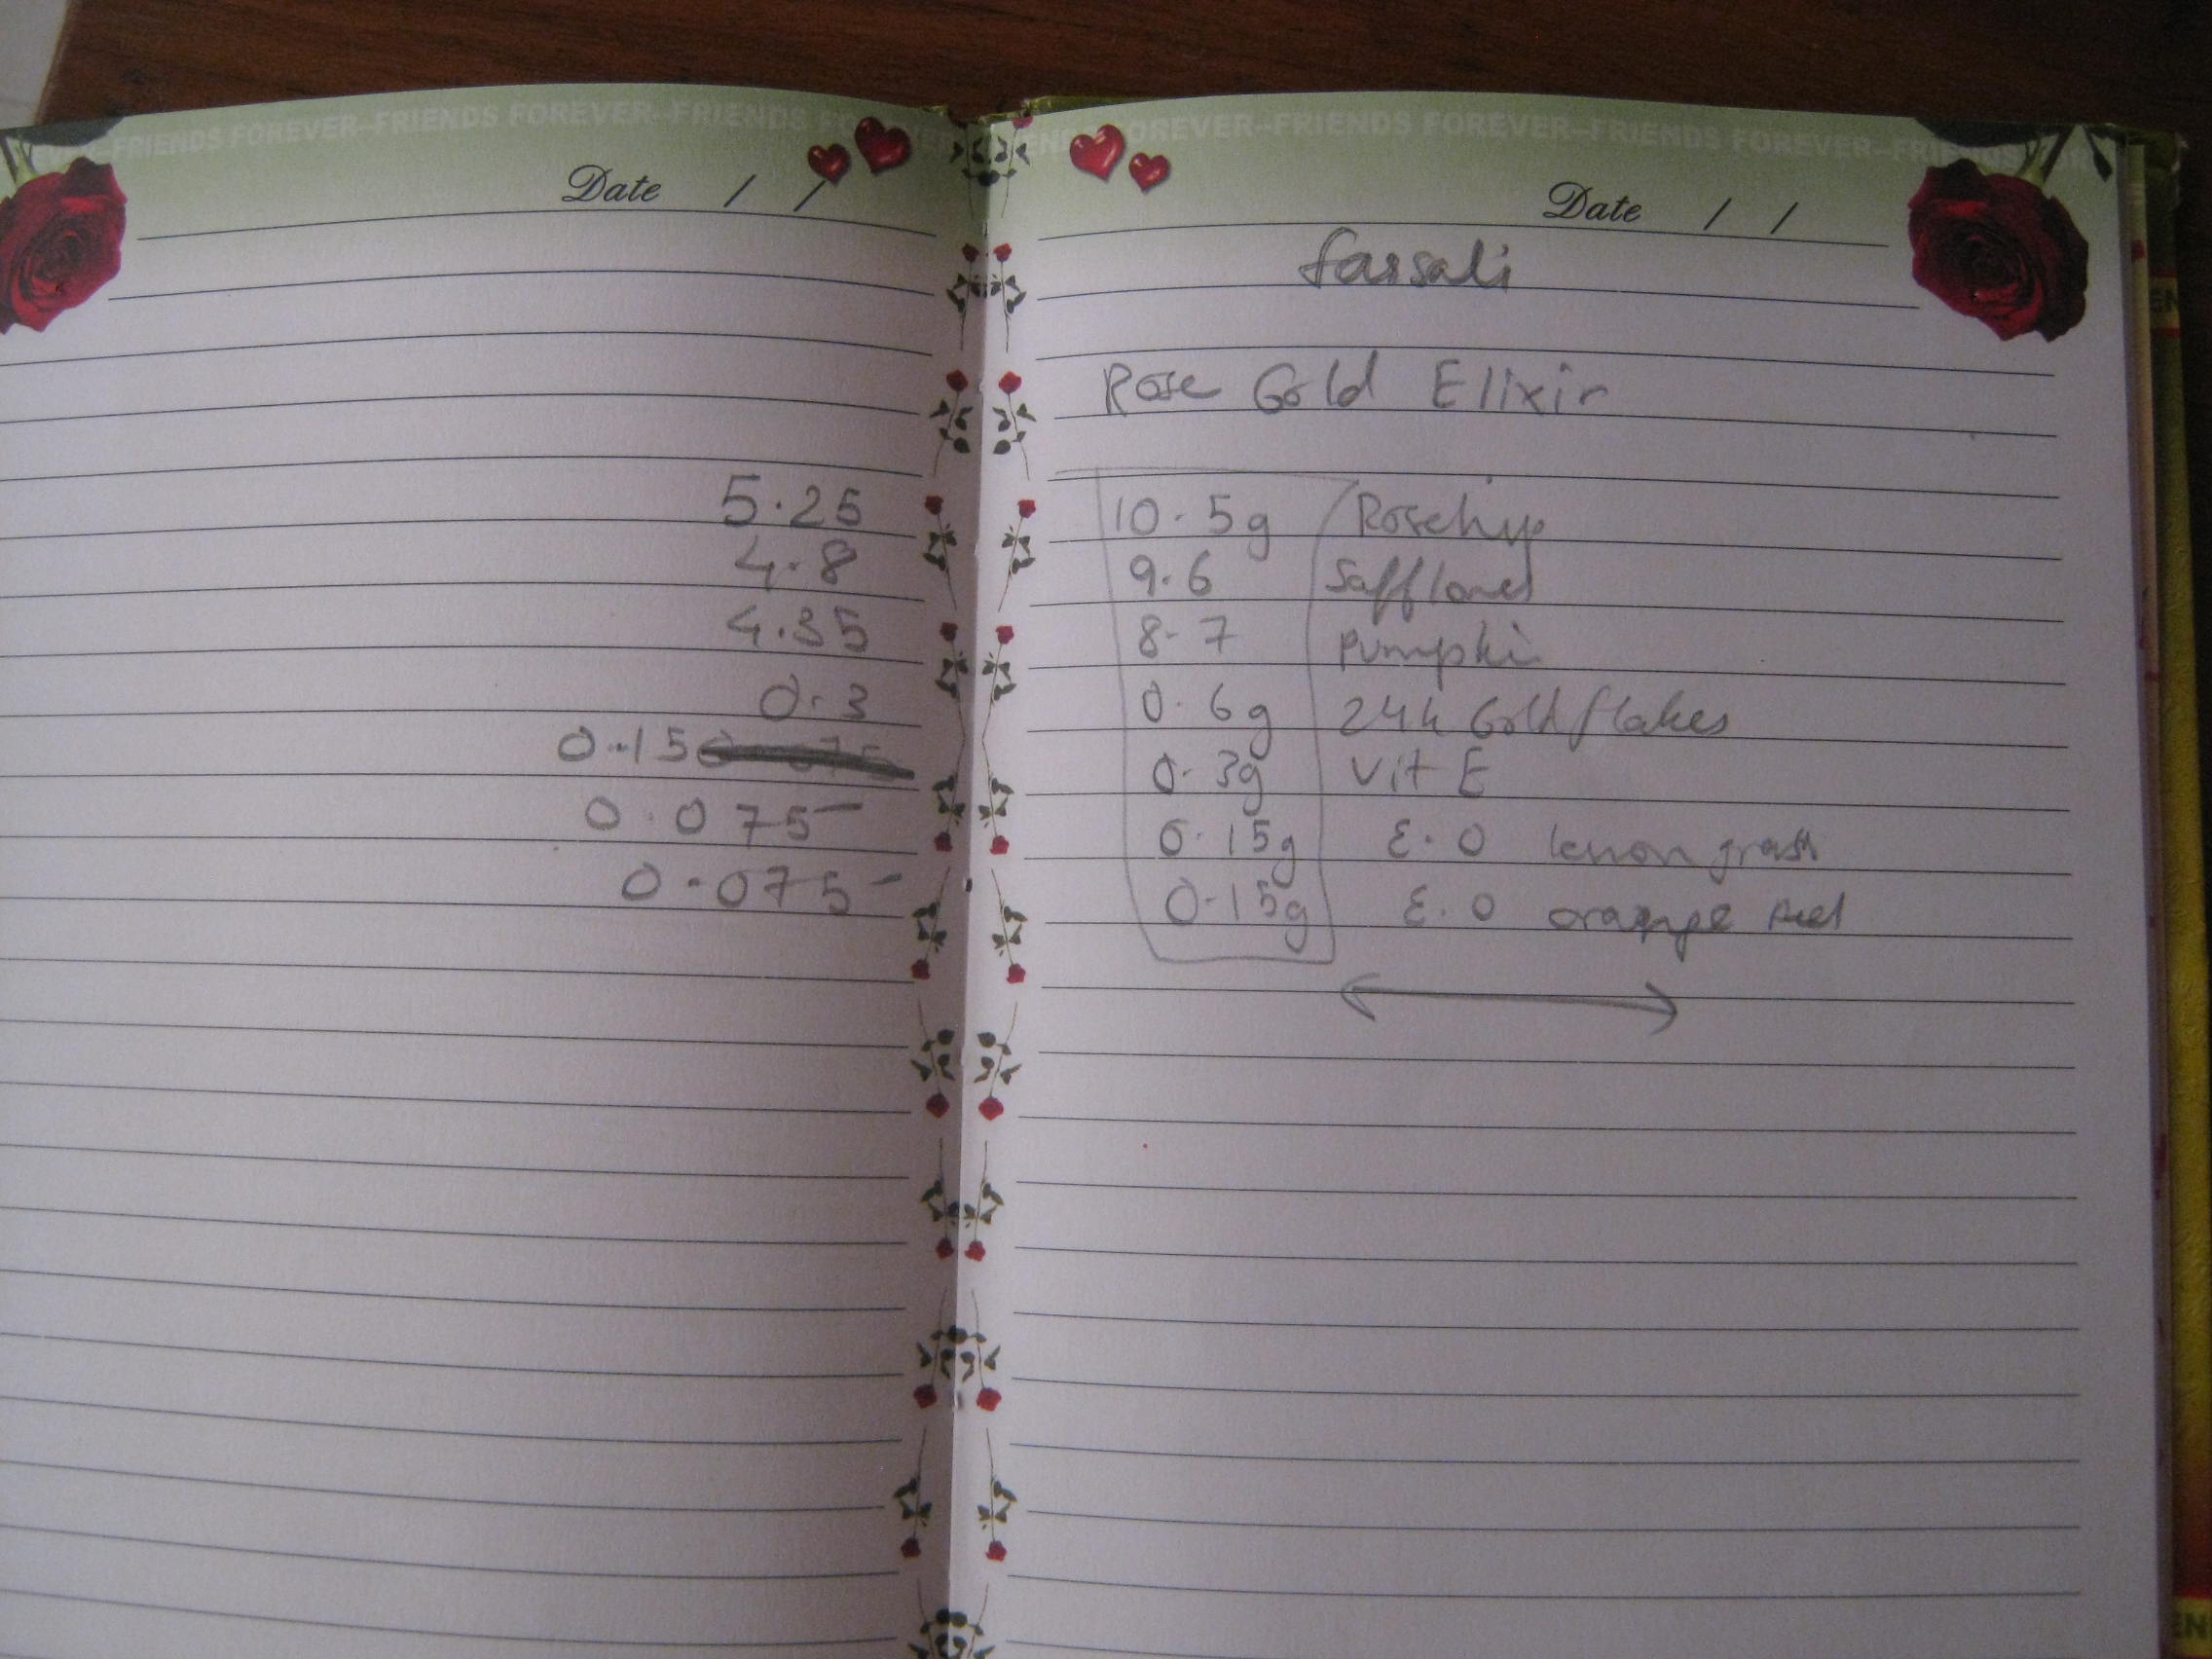 FRIENDS FOREVER--FRIENDS FOREVER--FRIENDS
Date / /
5.25
4.8
4.35
0.3
0.15
0.075
0.075
FOREVER--FRIENDS FOREVER--FRIENDS FOREVER--FRIENDS
Date / /
farsali
Rose Gold Elixir
10.5g Rosehip
9.6 Safflower
8.7 Pumpkin
0.6g 24k Gold flakes
0.3g Vit E
0.15g E.O lemon grass
0.15g E.O orange peel